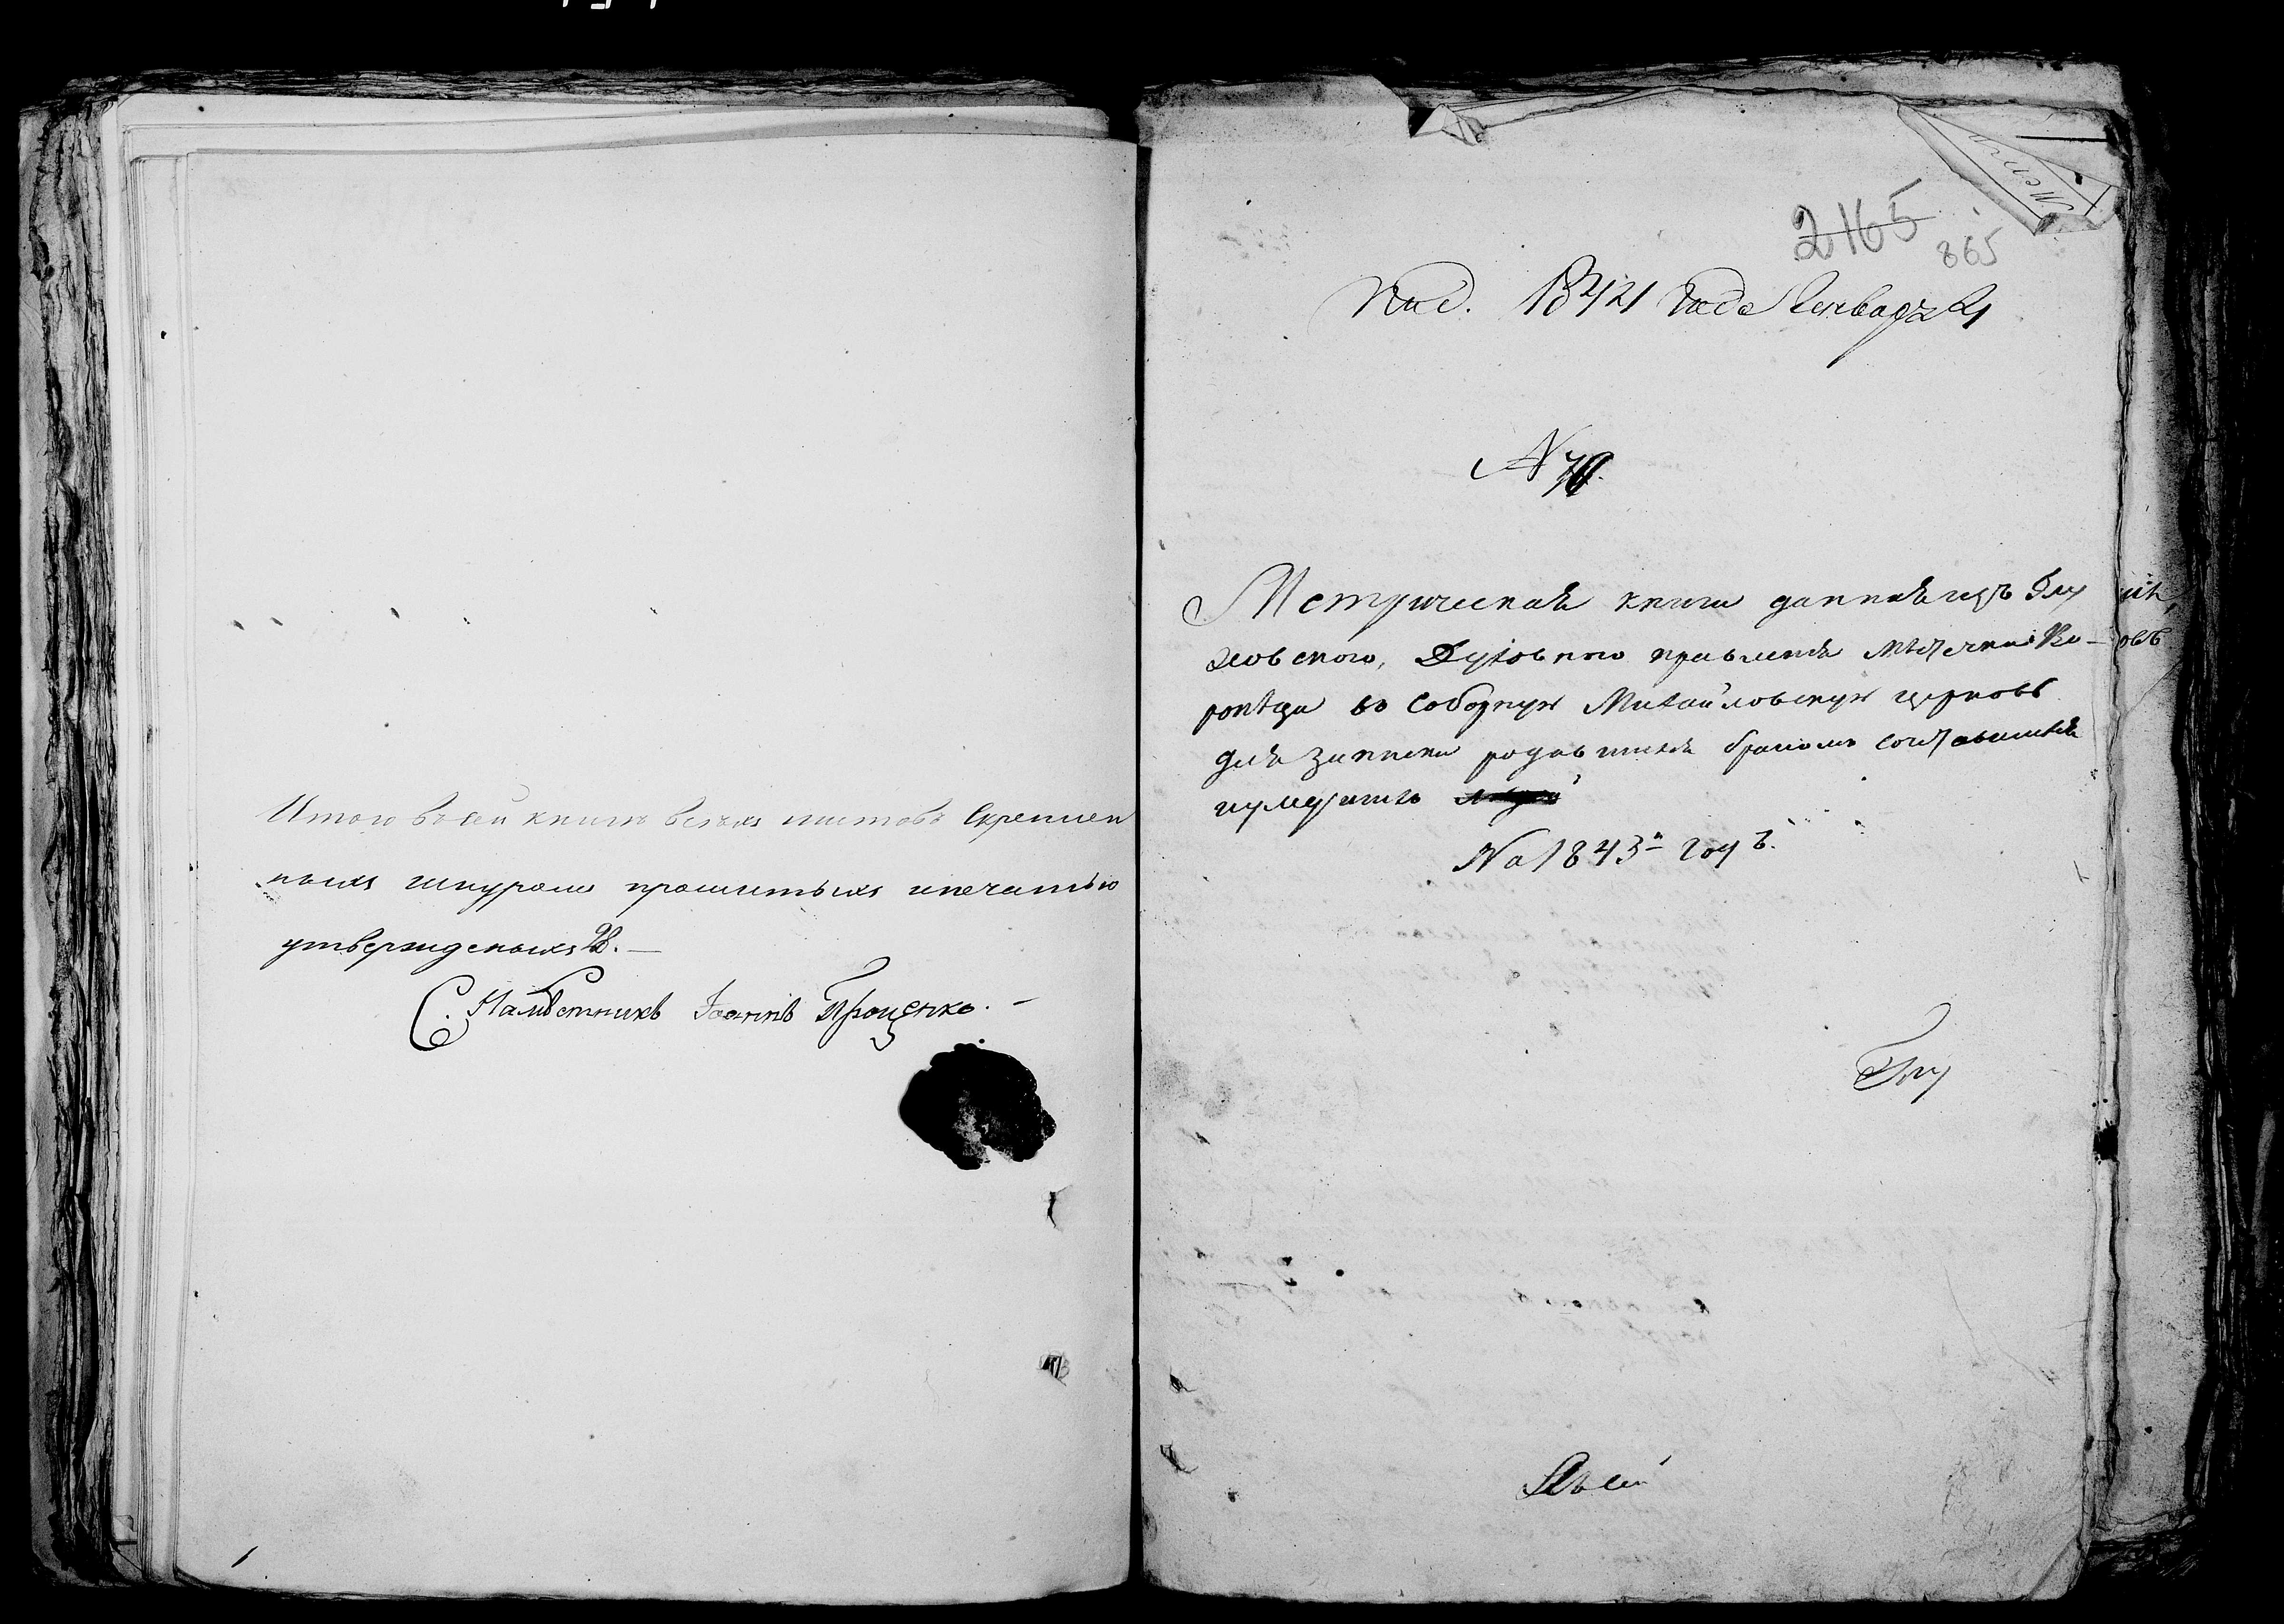 Итого въ сей книгѣ всѣхъ листовъ скреплен
ныхъ шнуромъ прошитыхъ ипечатью
утвержденыхъ 28. —
С. Намѣстникъ Іоаннъ Проценко. —
2165
865
Под. 1842 Года Генваря 21
N 70.
Метрическая книга данная изъ Глу
ховского, Духовного правленія мѣстечка Ко-
ропѣца во соборную Михайловскую церковь
для записки родившихся бракомъ сочетавшихся
иумершихъ
На 1843й годъ.
Глу